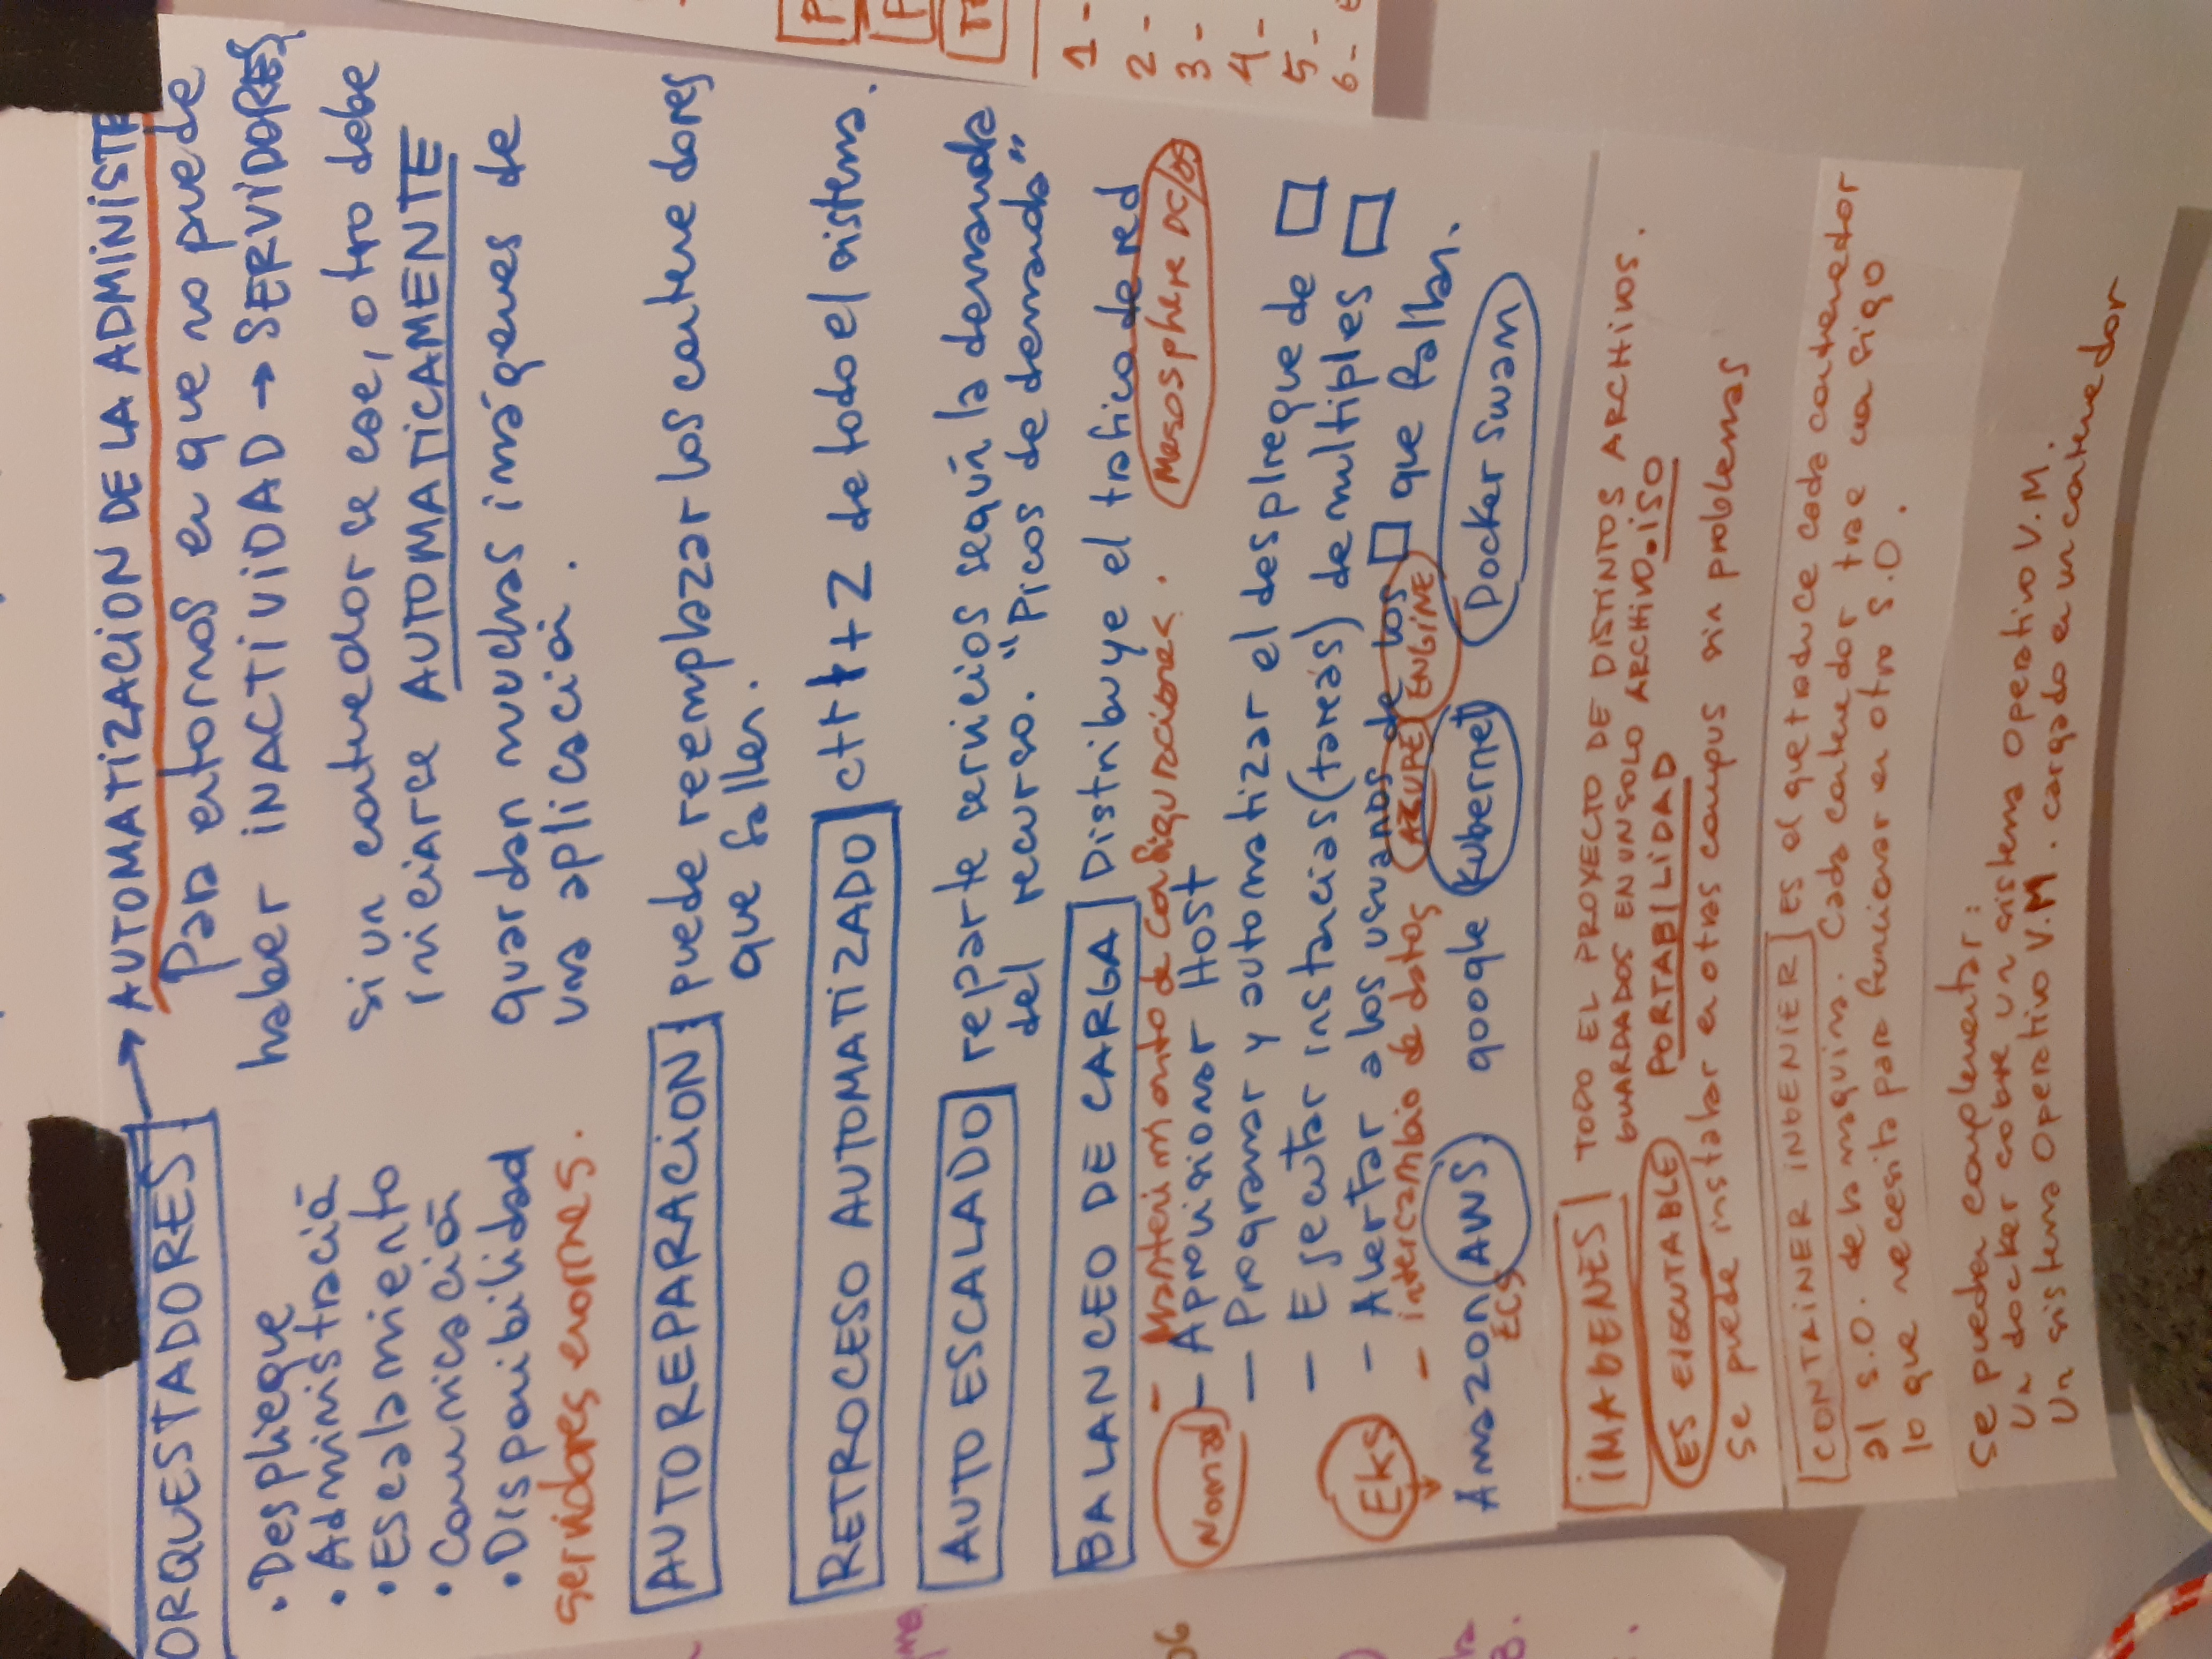 ORQUESTADORES → AUTOMATIZACION DE LA ADMINISTR
Para entornos en que no puede
haber INACTIVIDAD → SERVIDORES
• Despliegue
• Administración
• Escalamiento
• Comunicación
• Disponibilidad
servidores enormes.
si un contenedor se cae, otro debe
iniciarse AUTOMATICAMENTE
guardan muchas imágenes de
una aplicación.
AUTOREPARACION puede reemplazar los contenedores
que fallen.
RETROCESO AUTOMATIZADO ctrl + Z de todo el sistema.
AUTO ESCALADO reparte servicios según la demanda
del recurso. "Picos de demanda"
BALANCEO DE CARGA Distribuye el trafico de red
- Mantenimiento de configuraciones.
Mesosphere DC/OS
Nomad
- Aprovisionar Host
- Programar y automatizar el despliegue de
- Ejecutar instancias (tareas) de multiples
Eks
- Alertar a los usuarios de los que fallan.
- intercambio de datos AZURE ENGINE
Amazon AWS google Kubernet Docker Swam
ECS
IMAGENES TODO EL PROYECTO DE DISTINTOS ARCHIVOS.
GUARDADOS EN UN SOLO ARCHIVO .iSO
ES EJECUTABLE PORTABILIDAD
se puede instalar en otras compus sin problemas
CONTAINER INGENIER ES el que traduce cada contenedor
al S.O. de la maquina. Cada contenedor trae con sigo
lo que necesita para funcionar en otro S.O.
se pueden complementar:
Un docker sobre un sistema operativo V.M.
Un sistema operativo V.M. cargado en un contenedor
1 -
2 -
3 -
4 -
5 -
6 -